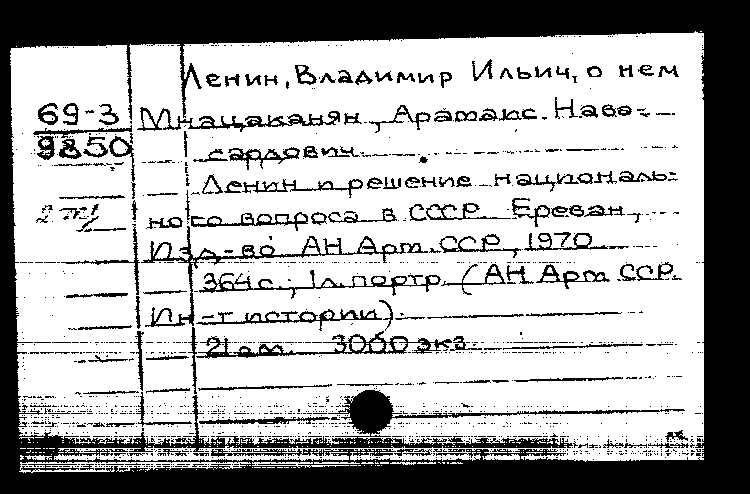 Ленин, Владимир Ильич, о нем
69-3 Мнацаканян, Арташис. Наво-
9850 сардович.
Ленин и решение националь-
ного вопроса в СССР. Ереван,
Изд-во АН Арм.ССР, 1970
364с.; 1л.портр. (АН Арм.ССР.
Ин-т истории).
21 3000 экз.